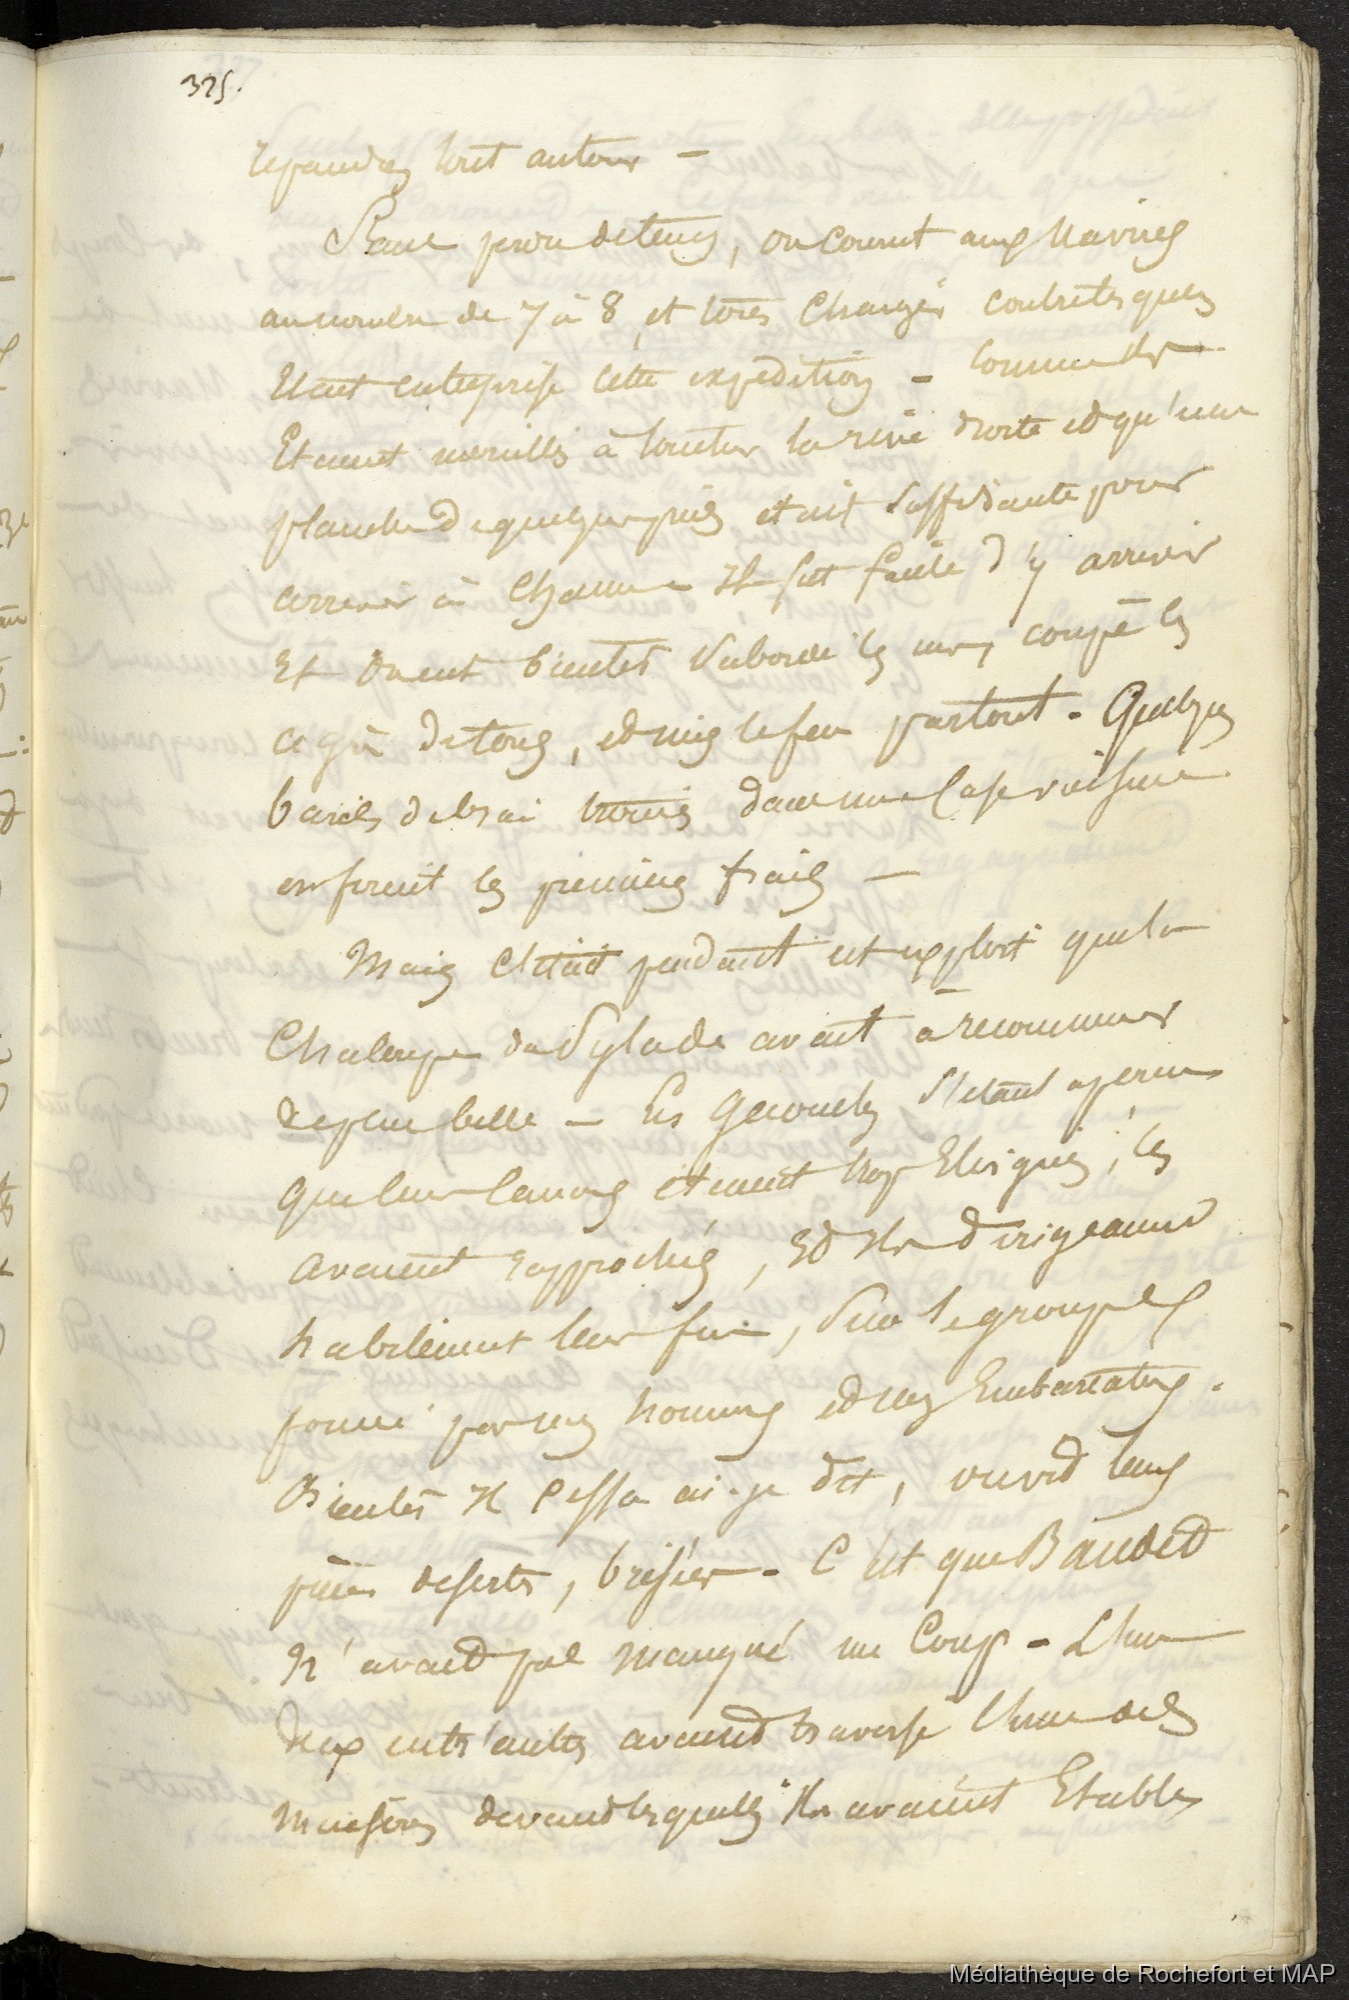 325.
repandus tout autour —
Sans perdre de temps, on courut aux Navires
au nombre de 7 à 8, et tous chargés
avant entreprise cette expédition —
Etaient mouillés à toucher la rive droite et qu'une
planche de quelques pieds était suffisante pour
arriver à chacun Il fut facile d'y arriver
Et on eut bientôt sabordé les uns, coupé les
de tous, et mis le feu partout. Quelques
barils de brai trouvés dans une Case voisine
en firent les premiers frais —
Mais c'était pendant cet exploit que la
Chaloupe du Pylade avait à recommencer
de plus belle — Les s'étant aperçus
que leurs canons étaient trop Eloignés, les
avaient rapprochés, Et Ils dirigeaient
habilement leur feu, sur le groupe
formé par nos hommes et nos Embarcations.
Bientôt Il cessa ai-je dit, on vit leurs
pièces desertes, brisées. C'est que Baudet
N'avait pas manqué un Coup — L'une
d'eux entr'autres avait traversé l'une des
Maisons devant lesquelles Ils avaient Etabli
Médiathèque de Rochefort et MAP